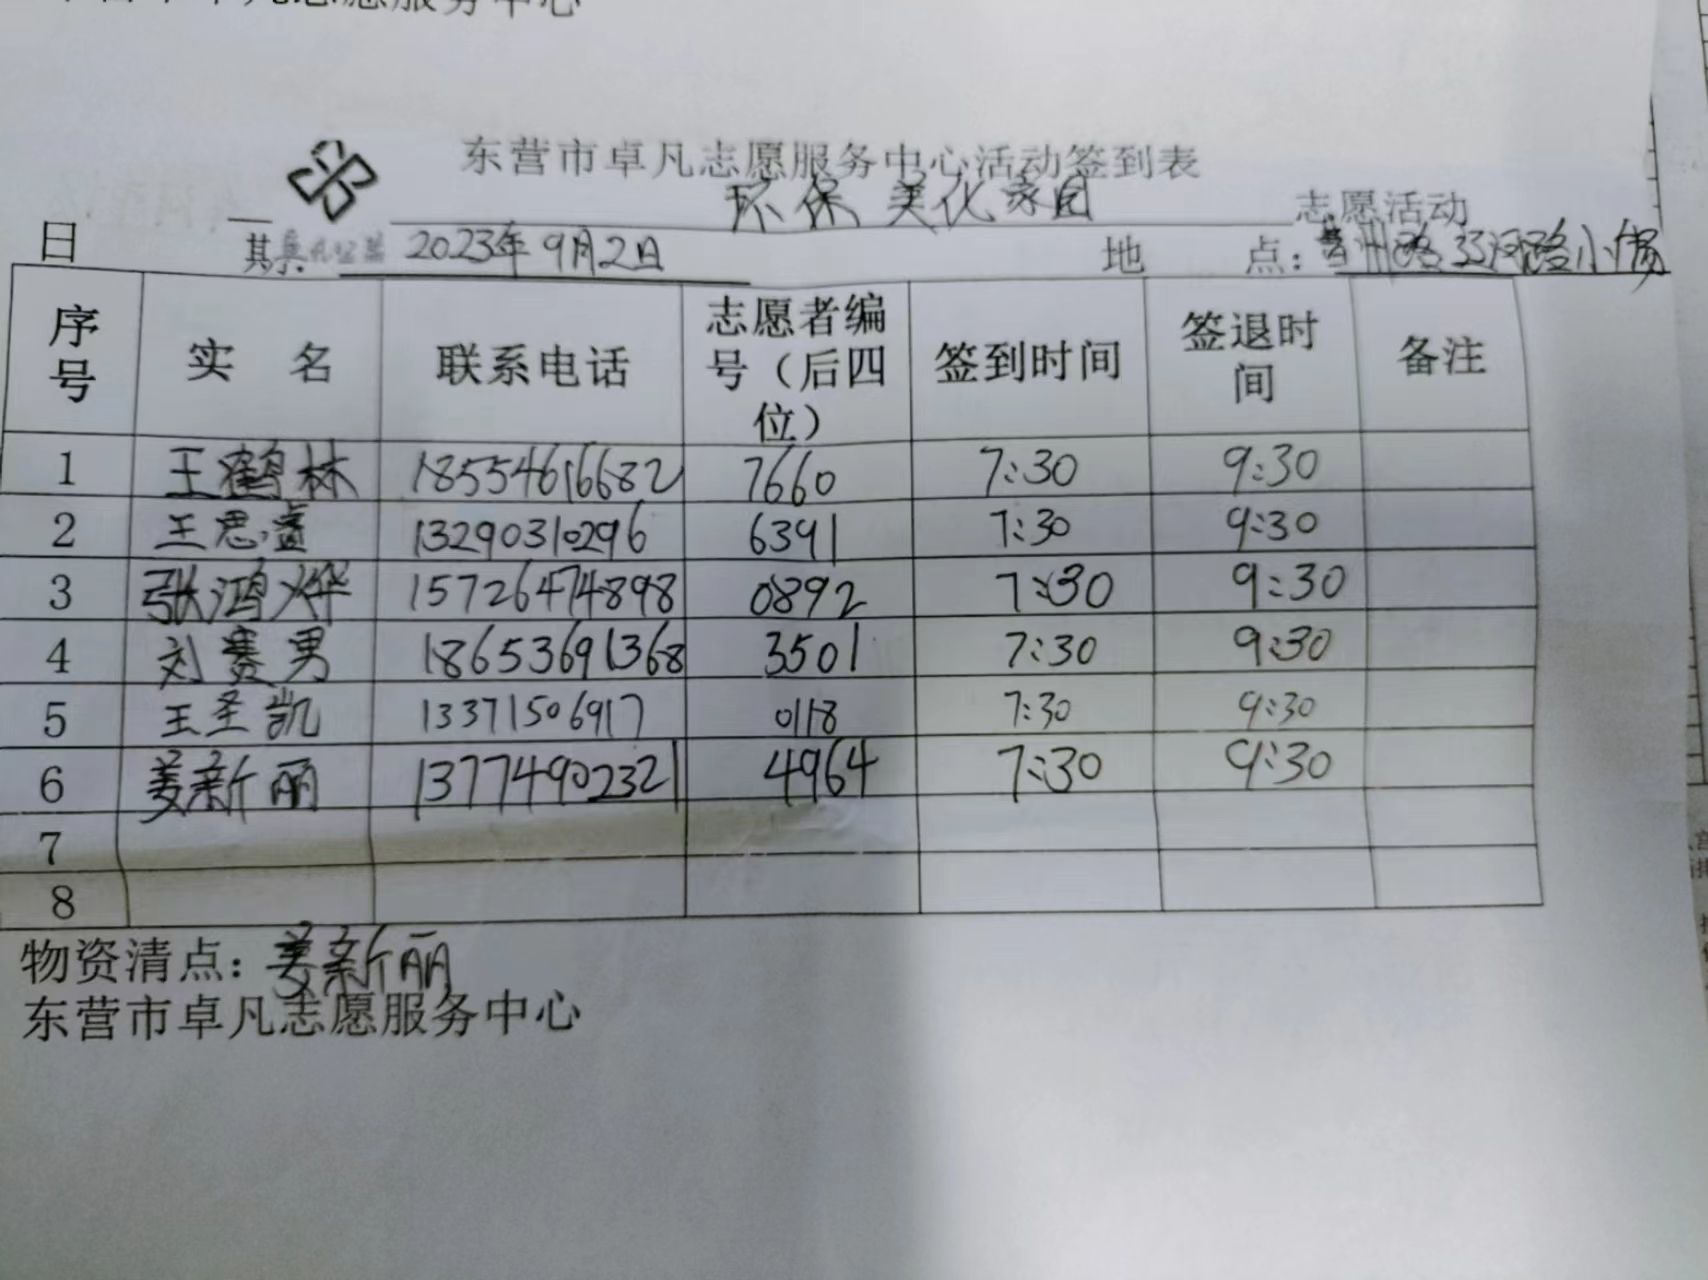 东营市卓凡志愿服务中心活动签到表
环保 美化家园 志愿活动
日 其 2023年9月2日 地 点：
序号 实 名 联系电话 志愿者编号（后四位） 签到时间 签退时间 备注
1 王鹤林 18554616682 7660 7:30 9:30
2 王思 13290310296 6391 7:30 9:30
3 张鸿烨 15726474898 0892 7:30 9:30
4 刘赛男 18653691368 3501 7:30 9:30
5 王圣凯 13371506917 0118 7:30 9:30
6 姜新丽 13774902321 4964 7:30 9:30
7
8
物资清点：姜新丽
东营市卓凡志愿服务中心